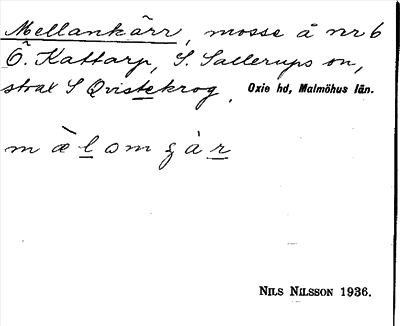 Mellankärr, mosse å nr 6
Ö. Kattarp, S. Sallerups sn,
strax S Qvistekrog. Oxie hd, Malmöhus län.
mæ̀lomgàr
NILS NILSSON 1936.